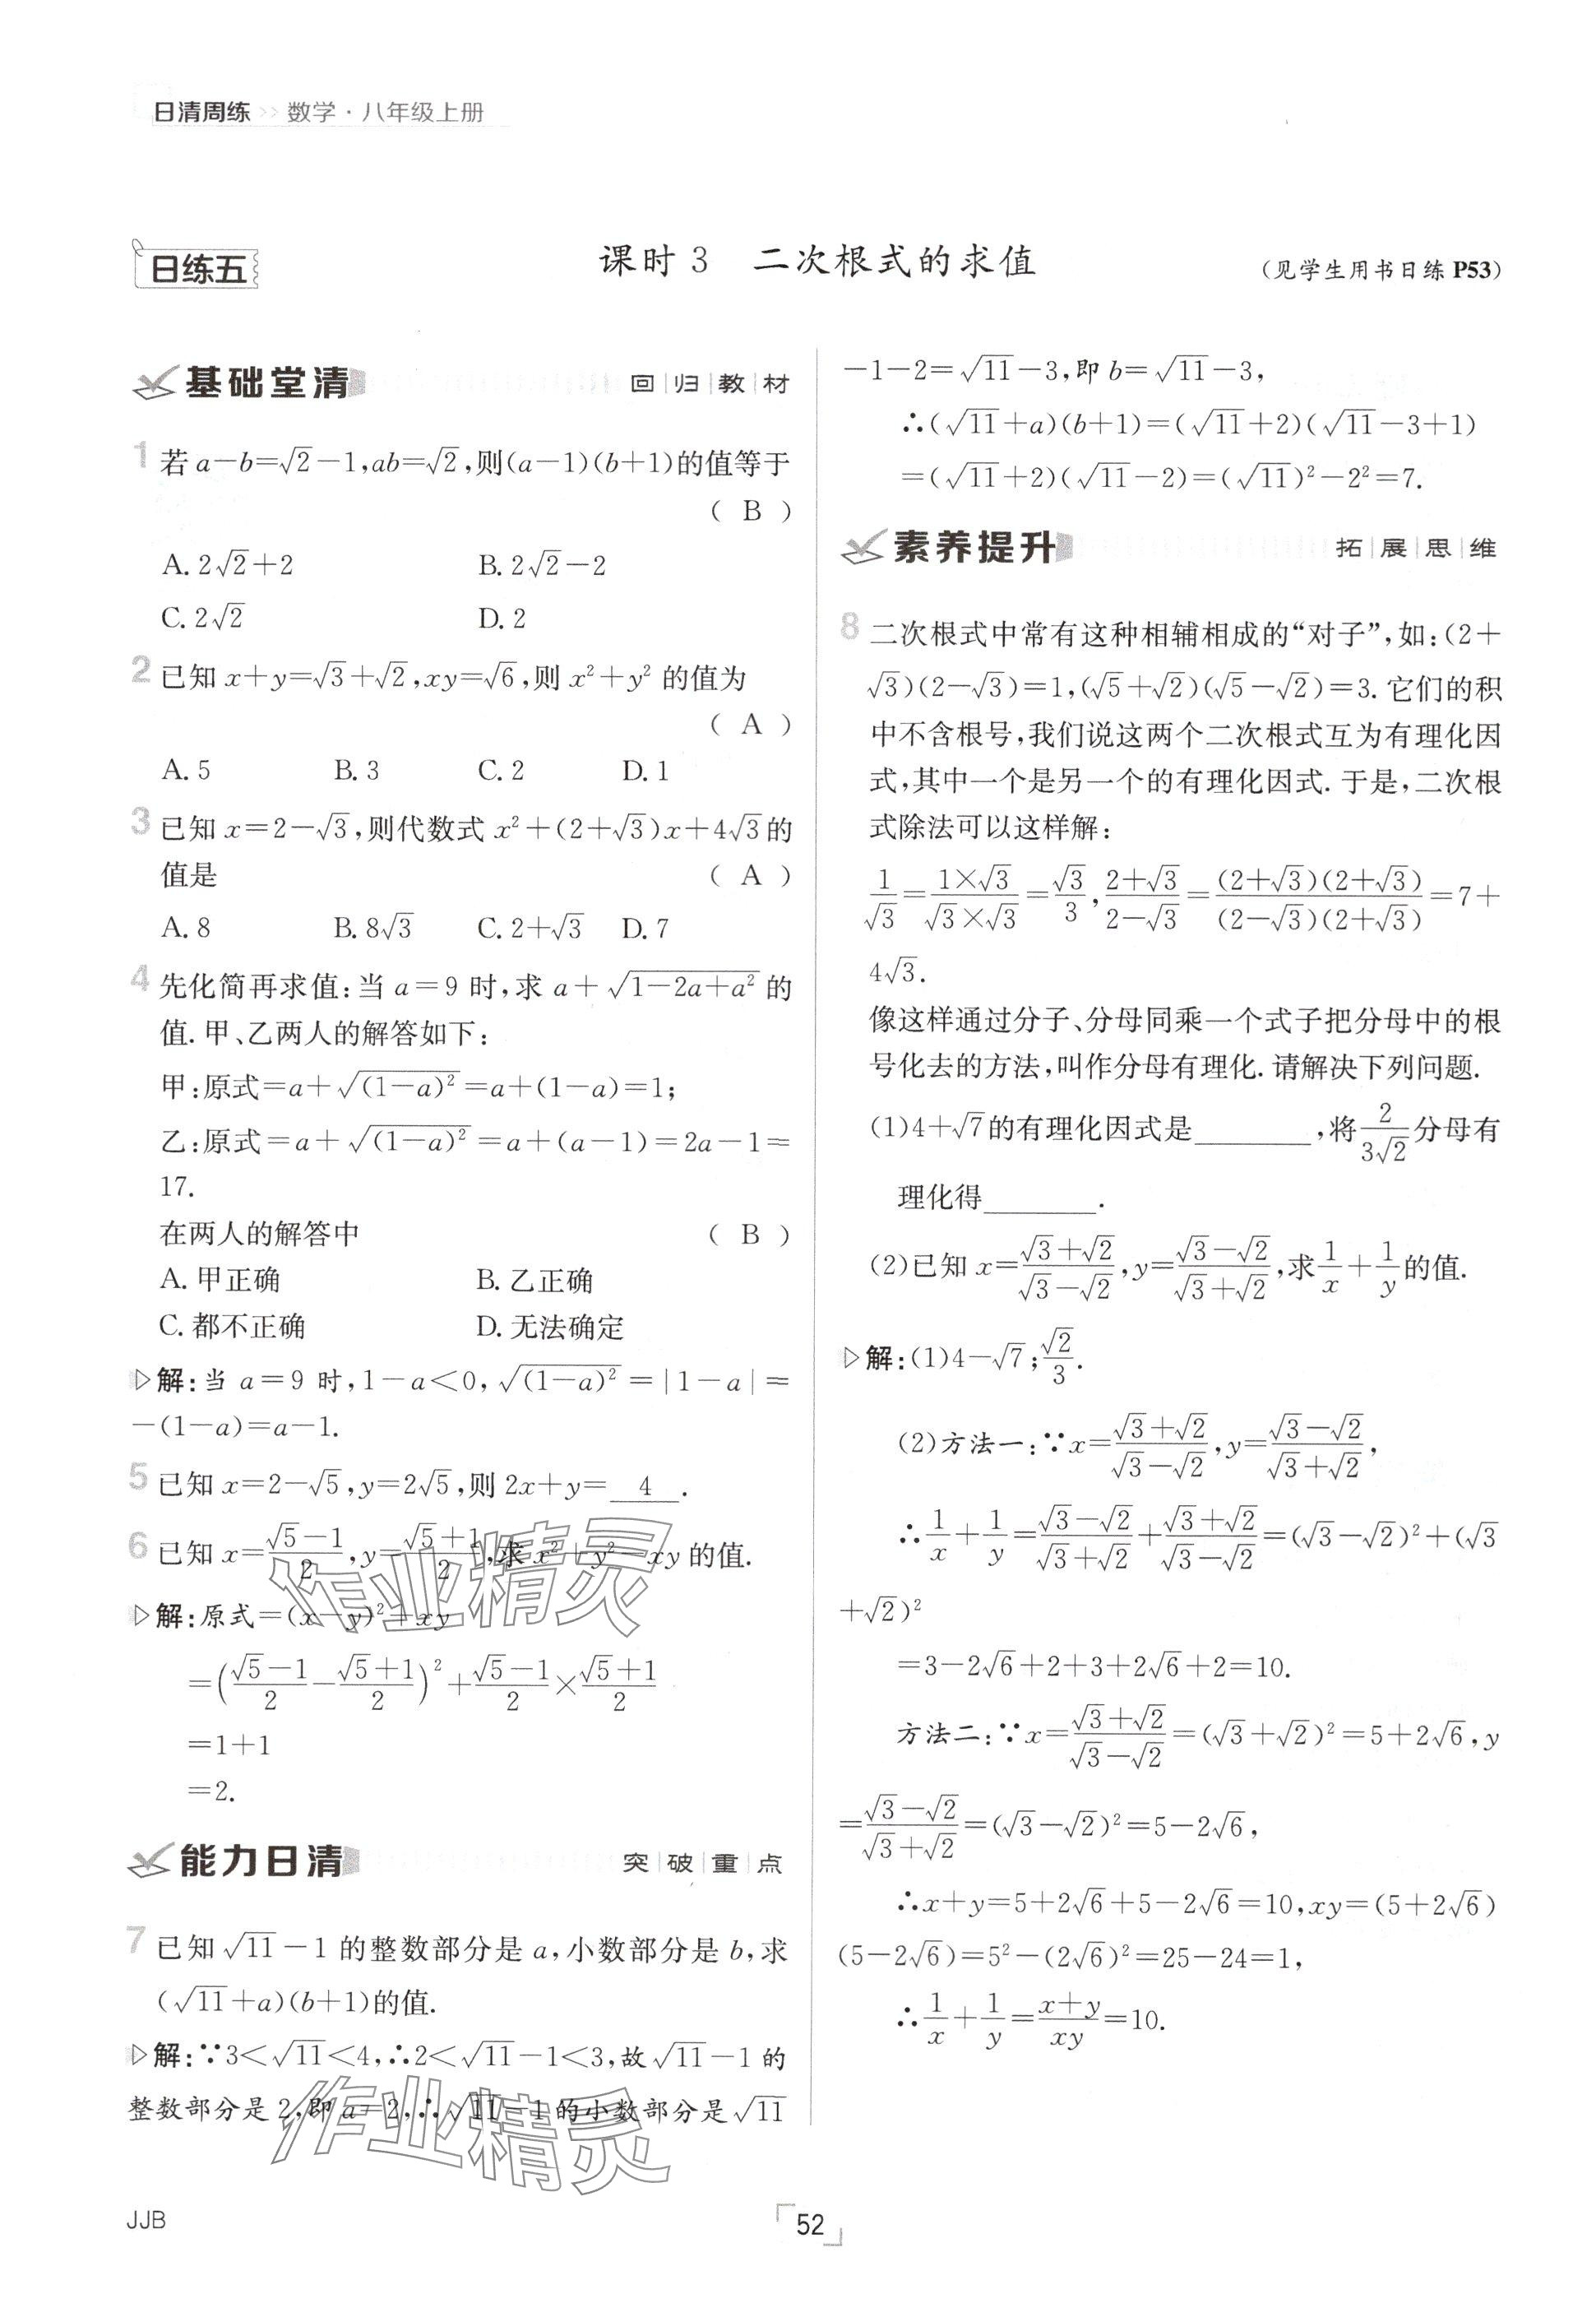 日清周练 >> 数学·八年级上册
日练五
课时3 二次根式的求值
(见学生用书日练P53)
基础堂清 回|归|教|材
1 若a-b=√2-1,ab=√2,则(a-1)(b+1)的值等于
( B )
A. 2√2+2 B. 2√2-2
C. 2√2 D. 2
2 已知x+y=√3+√2,xy=√6,则x²+y²的值为
( A )
A. 5 B. 3 C. 2 D. 1
3 已知x=2-√3,则代数式x²+(2+√3)x+4√3的
值是 ( A )
A. 8 B. 8√3 C. 2+√3 D. 7
4 先化简再求值:当a=9时,求a+√(1-2a+a²)的
值. 甲、乙两人的解答如下:
甲:原式=a+√((1-a)²)=a+(1-a)=1;
乙:原式=a+√((1-a)²)=a+(a-1)=2a-1=
17.
在两人的解答中 ( B )
A. 甲正确 B. 乙正确
C. 都不正确 D. 无法确定
▷解:当a=9时,1-a<0,√((1-a)²)=|1-a|=
-(1-a)=a-1.
5 已知x=2-√5,y=2√5,则2x+y= 4 .
6 已知x=(√5-1)/2,y=(√5+1)/2,求x²+y²-xy的值.
▷解:原式=(x-y)²+xy
=((√5-1)/2-(√5+1)/2)²+(√5-1)/2×(√5+1)/2
=1+1
=2.
能力日清 突|破|重|点
7 已知√11-1的整数部分是a,小数部分是b,求
(√11+a)(b+1)的值.
▷解:∵3<√11<4,∴2<√11-1<3,故√11-1的
整数部分是2,即a=2,∴√11-1的小数部分是√11
-1-2=√11-3,即b=√11-3,
∴(√11+a)(b+1)=(√11+2)(√11-3+1)
=(√11+2)(√11-2)=(√11)²-2²=7.
素养提升 拓|展|思|维
8 二次根式中常有这种相辅相成的“对子”,如:(2+
√3)(2-√3)=1,(√5+√2)(√5-√2)=3. 它们的积
中不含根号,我们说这两个二次根式互为有理化因
式,其中一个是另一个的有理化因式. 于是,二次根
式除法可以这样解:
1/√3=(1×√3)/(√3×√3)=√3/3,(2+√3)/(2-√3)=((2+√3)(2+√3))/((2-√3)(2+√3))=7+
4√3.
像这样通过分子、分母同乘一个式子把分母中的根
号化去的方法,叫作分母有理化. 请解决下列问题.
(1)4+√7的有理化因式是________,将2/(3√2)分母有
理化得________.
(2)已知x=(√3+√2)/(√3-√2),y=(√3-√2)/(√3+√2),求1/x+1/y的值.
▷解:(1)4-√7;√2/3.
(2)方法一:∵x=(√3+√2)/(√3-√2),y=(√3-√2)/(√3+√2),
∴1/x+1/y=(√3-√2)/(√3+√2)+(√3+√2)/(√3-√2)=(√3-√2)²+(√3
+√2)²
=3-2√6+2+3+2√6+2=10.
方法二:∵x=(√3+√2)/(√3-√2)=(√3+√2)²=5+2√6,y
=(√3-√2)/(√3+√2)=(√3-√2)²=5-2√6,
∴x+y=5+2√6+5-2√6=10,xy=(5+2√6)
(5-2√6)=5²-(2√6)²=25-24=1,
∴1/x+1/y=(x+y)/xy=10.
作业精灵
作业精灵
JJB
52